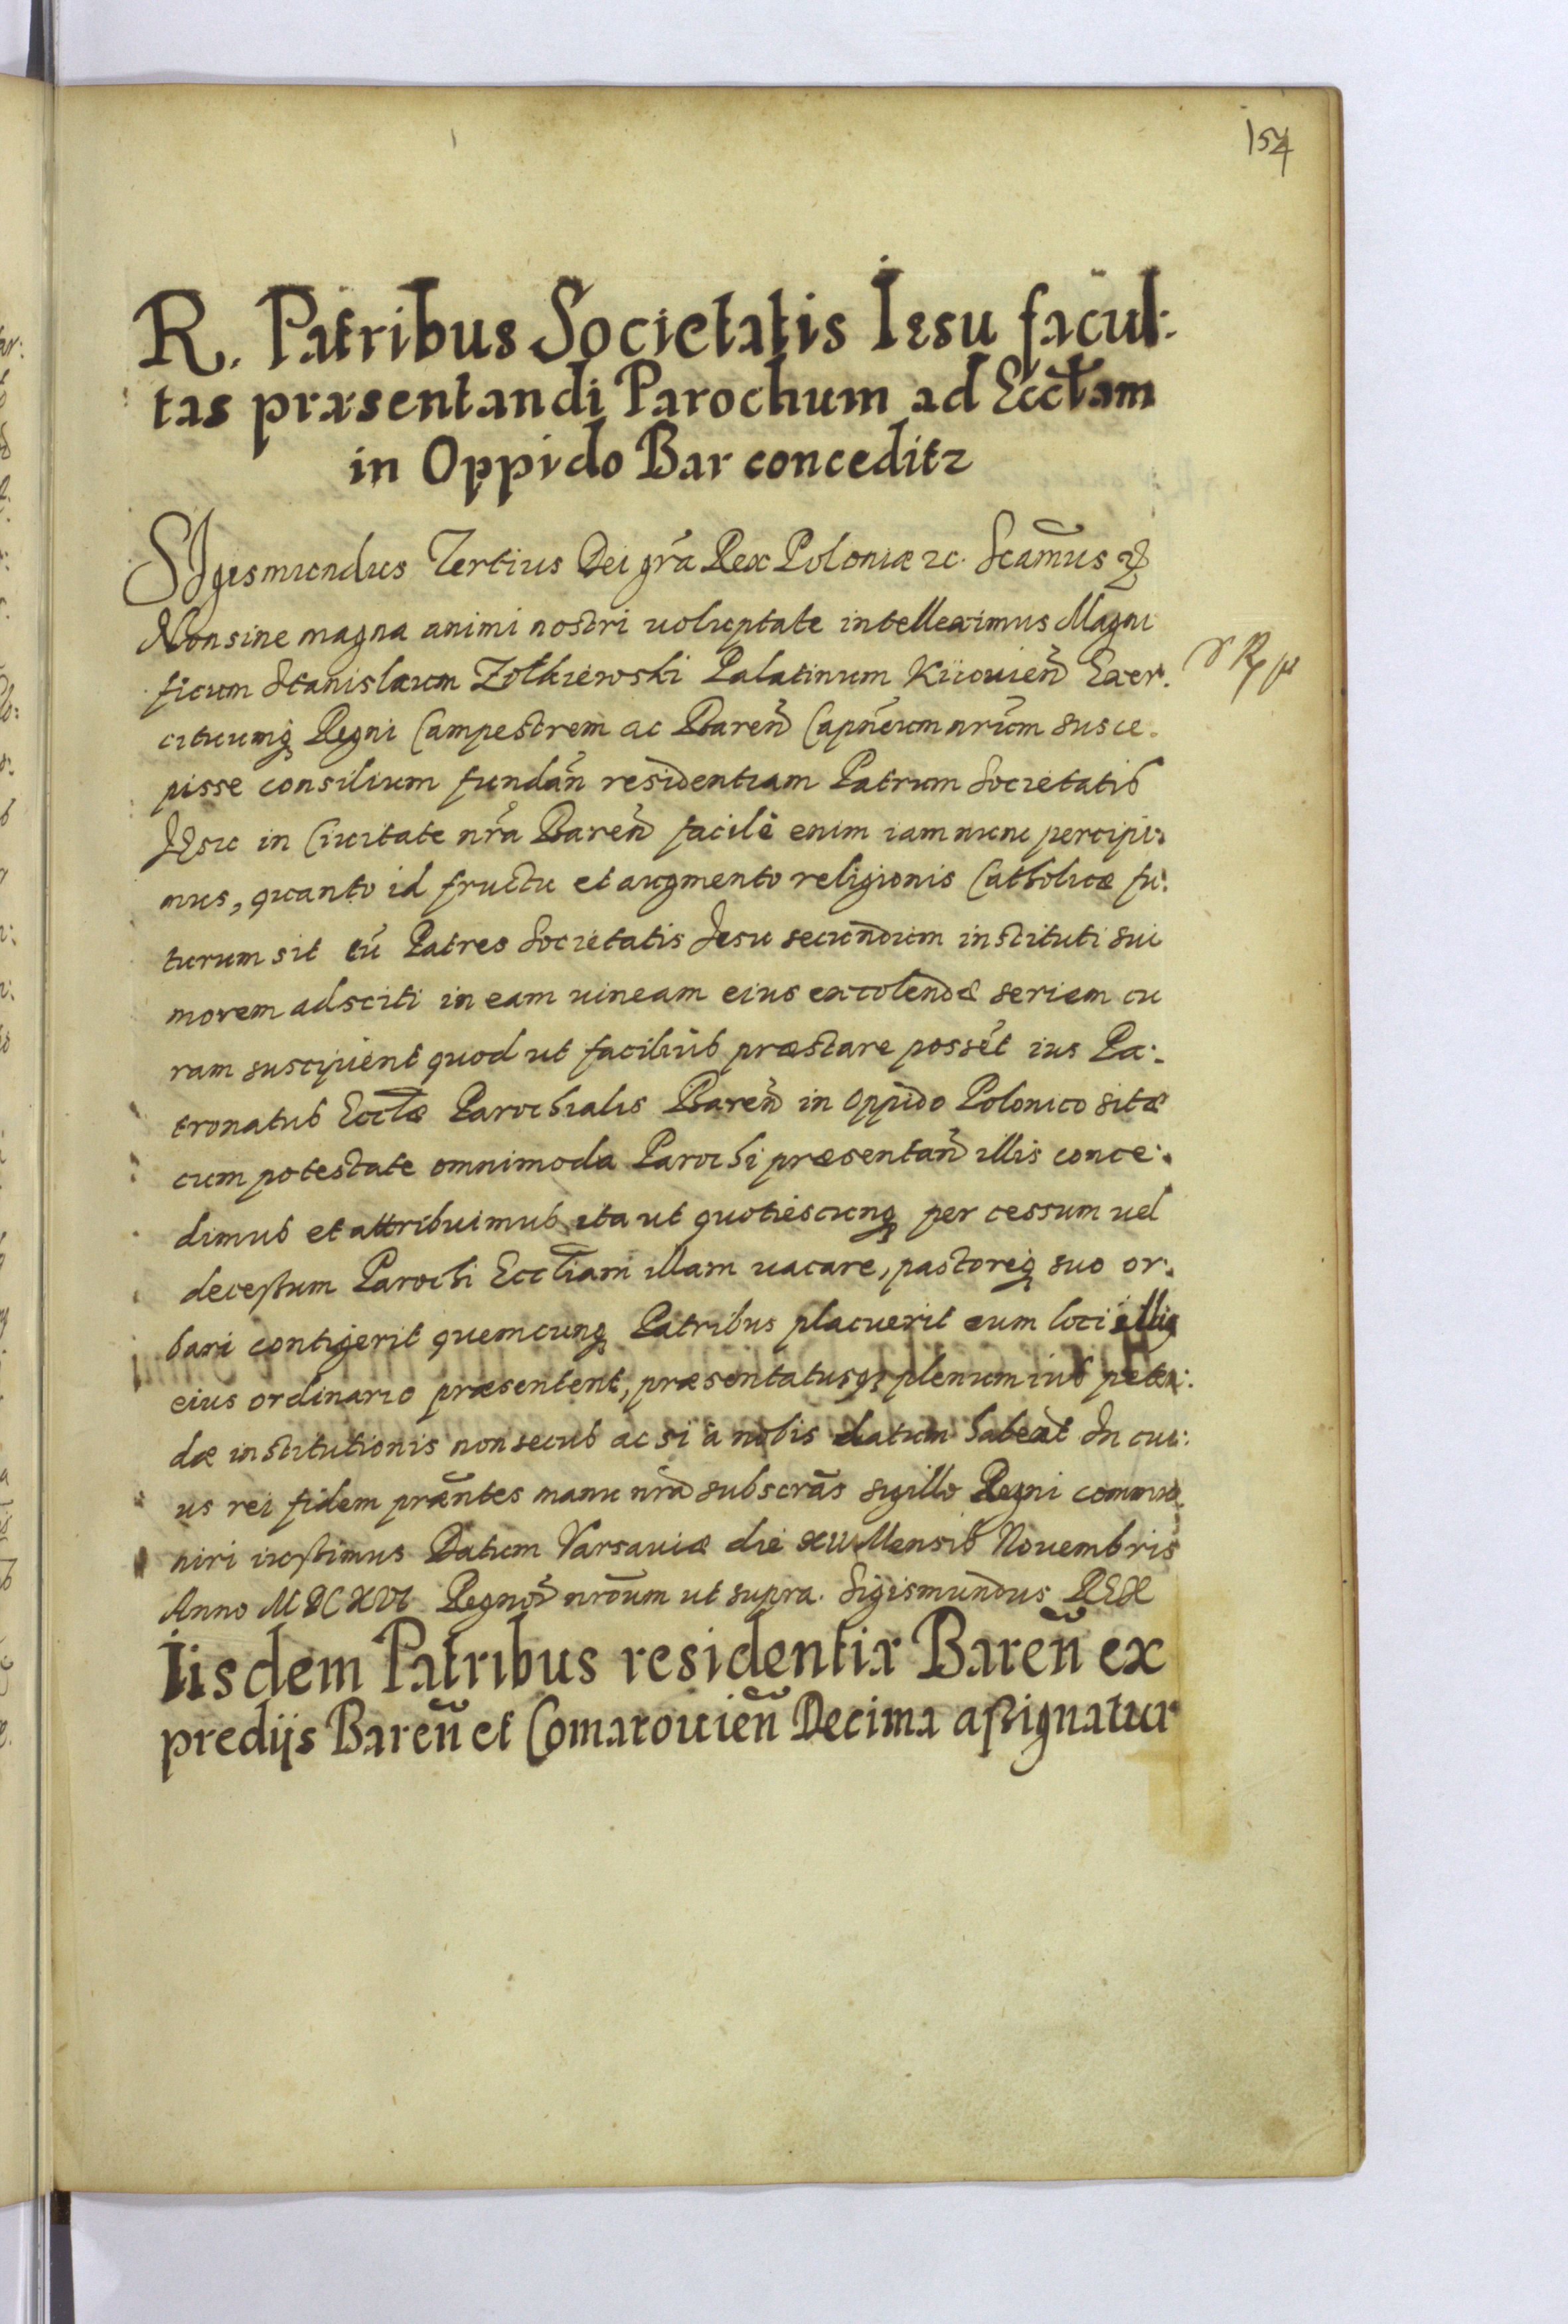 154
R. Patribus Societatis Iesu facul:
tas præsentandi Parochum ad Eccl̃am
in Oppido Bar conceditr
SIgismundus Tertius Dei gr̃a Rex Poloniæ &c. Sc̃amus
Non sine magna animi nostri uoluptate intelleximus Magni
ficum Stanislaum Zołkiewski Palatinum Kiiouien̄ Exer:
cituumq̨ Regni Campestrem ac Baren̄ Capñeum nrũm susce:
pisse consilium fundan̄ residentiam Patrum Societatis
Jesu in Ciuitate nr̃a Baren̄ facilè enim iam nunc percipi:
mus, quanto id fructu et augmento religionis Catholicæ fu:
turum sit cũ Patres Societatis Jesu secundum instituti sui
morem adsciti in eam uineam eius excolendæ seriem cu
ram suscipient quod ut facilius præstare possẽt ius Pa:
tronatus Eccl̃æ Parochialis Baren̄ in Oppido Polonico sitæ
cum potestate omnimoda Parochi præsentan̄ illis conce:
dimus et attribuimus ita ut quotiescunq̨ per cessum uel
decessum Parochi Eccl̃iam illam uacare, pastoreq̨ suo or:
bari contigerit quemcunq̨ Patribus placuerit eum loci illiq̨
eius ordinario præsentent, præsentatusq̨ plenum ius peten:
dæ institutionis non secus ac si à nobis datum habeat In cui:
us rei fidem præñtes manu nr̃a subscr̃as sigillo Regni commu:
niri iussimus Datum Varsauiæ die Mensis Nouembris
Anno MDCXVI Regnoȓ nrõum ut supra. Sigismundus REX
Iisdem Patribus residentiæ Baren̄ ex
predijs Baren̄ et Comarouien̄ Decima assignatur